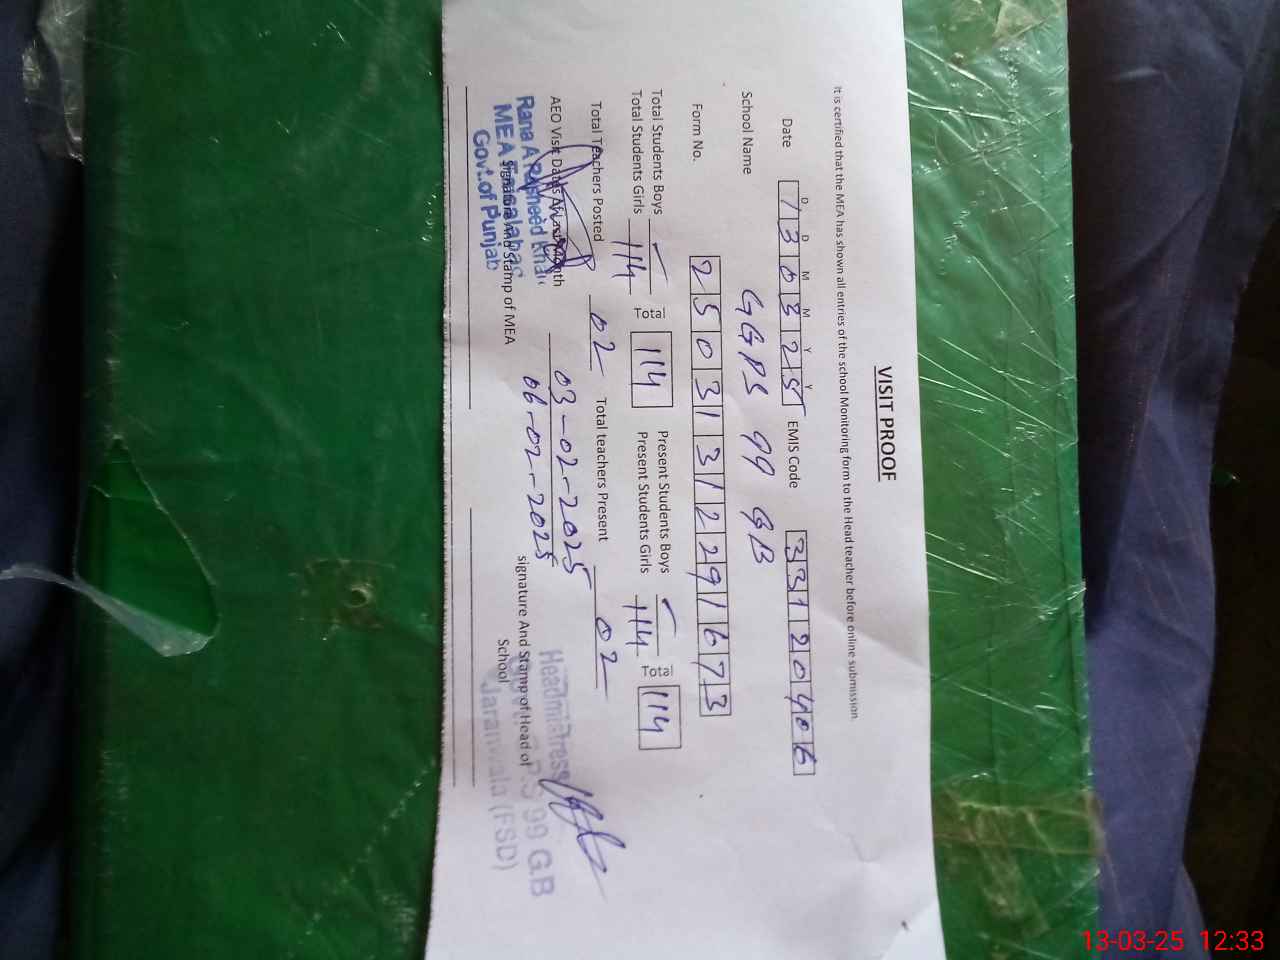 VISIT PROOF
It is certified that the MEA has shown all entries of the school Monitoring form to the Head teacher before online submission.
D D M M Y Y
Date 13 03 25 EMIS Code 33120406
School Name GGPS 99 GB
Form No. 25031312291673
Total Students Boys – Present Students Boys –
Total Students Girls 114 Total 114 Present Students Girls 114 Total 114
Total Teachers Posted 02 Total teachers Present 02
AEO Visit Dates Of Last Month 03-02-2025
06-02-2025
Signature And Stamp of MEA
signature And Stamp of Head of School
Rana A Rasheed Khan
MEA Faisalabad
Govt.of Punjab
Headmistress
P.S 99 G.B
Jaranwala (FSD)
13-03-25 12:33